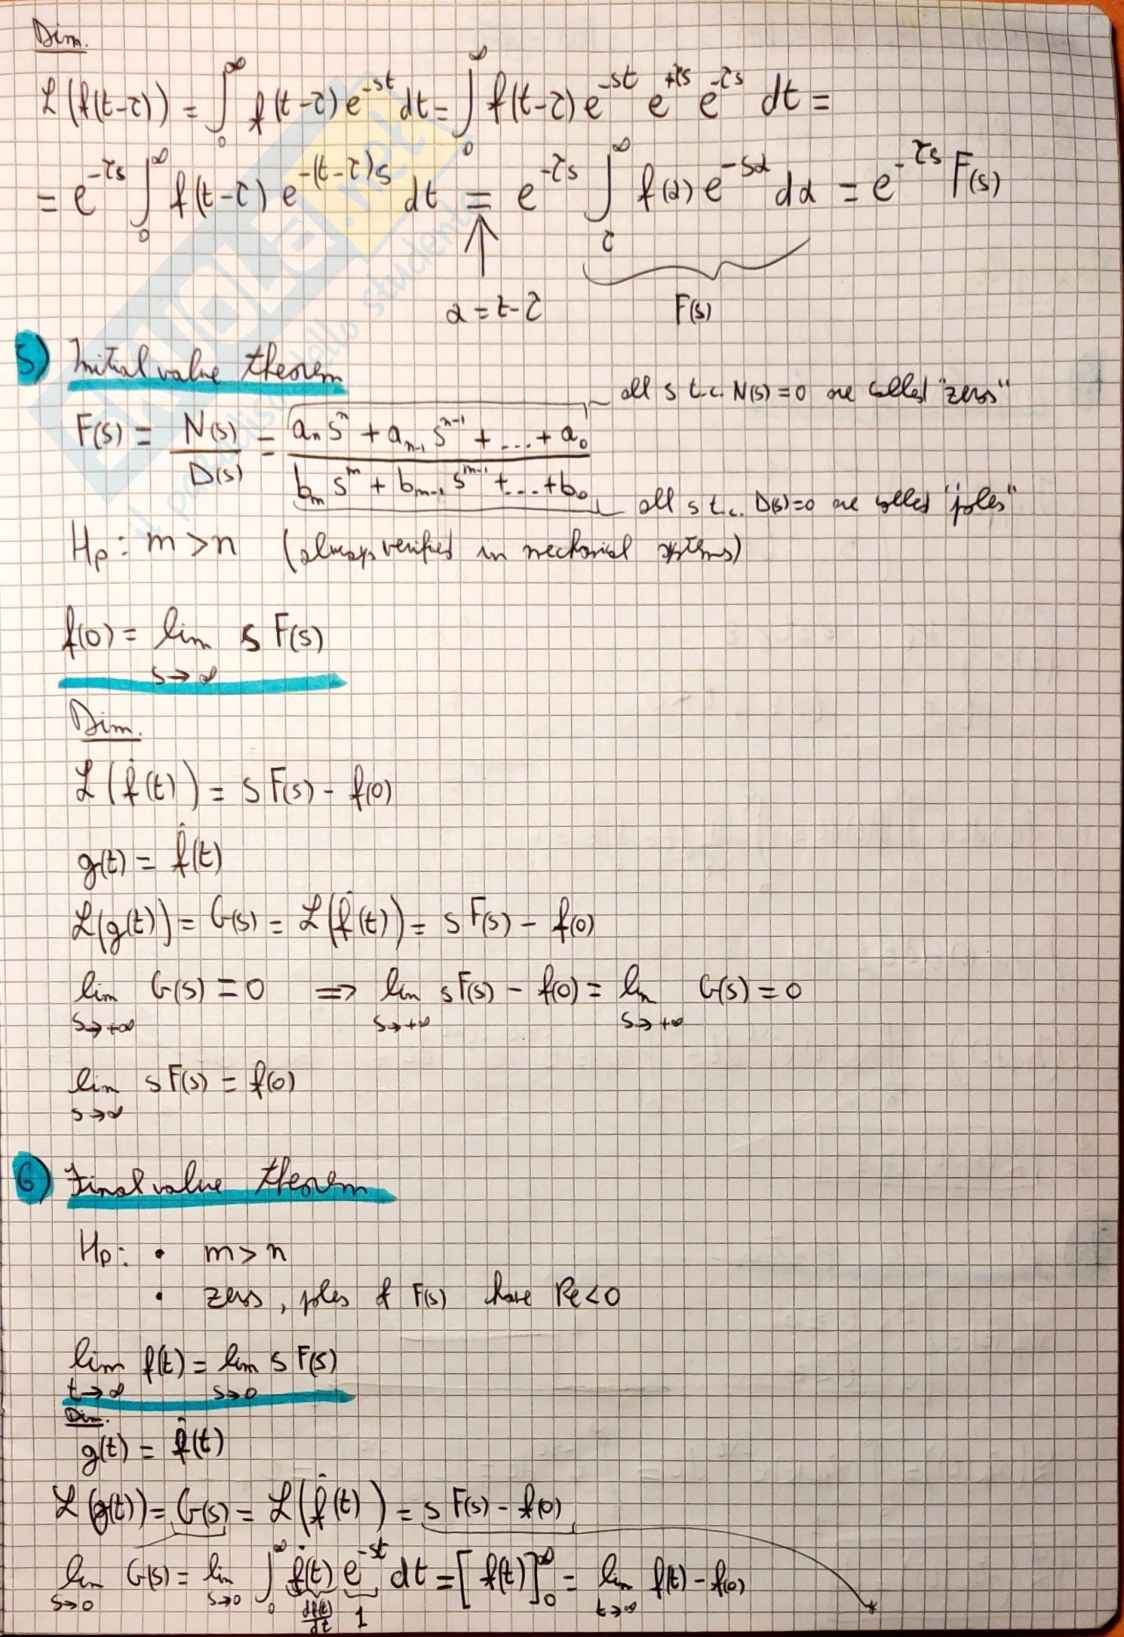 Dim.
ℒ(f(t-τ)) = ∫₀^∞ f(t-τ) e^{-st} dt = ∫₀^∞ f(t-τ) e^{-st} e^{+τs} e^{-τs} dt =
= e^{-τs} ∫₀^∞ f(t-τ) e^{-(t-τ)s} dt = e^{-τs} ∫_τ^∞ f(α) e^{-sα} dα = e^{-τs} F(s)
α = t-τ F(s)
5) Initial value theorem
all s t.c. N(s)=0 are called "zeros"
F(s) = N(s)/D(s) = (aₙ sⁿ + aₙ₋₁ sⁿ⁻¹ + ... + a₀)/(bₘ sᵐ + bₘ₋₁ sᵐ⁻¹ + ... + b₀)
all s t.c. D(s)=0 are called "poles"
Hp: m>n (always verified in systems)
f(0) = lim_{s→∞} s F(s)
Dim.
ℒ(ḟ(t)) = s F(s) - f(0)
g(t) = ḟ(t)
ℒ(g(t)) = G(s) = ℒ(ḟ(t)) = s F(s) - f(0)
lim_{s→+∞} G(s) = 0 ⇒ lim_{s→+∞} s F(s) - f(0) = lim_{s→+∞} G(s) = 0
lim_{s→∞} s F(s) = f(0)
6) Final value theorem
Hp: • m>n
• zeros, poles of F(s) have Re<0
lim_{t→∞} f(t) = lim_{s→0} s F(s)
Dim.
g(t) = ḟ(t)
ℒ(g(t)) = G(s) = ℒ(ḟ(t)) = s F(s) - f(0)
lim_{s→0} G(s) = lim_{s→0} ∫₀^∞ ḟ(t) e^{-st} dt = [f(t)]₀^∞ = lim_{t→∞} f(t) - f(0)
df(t)/dt 1